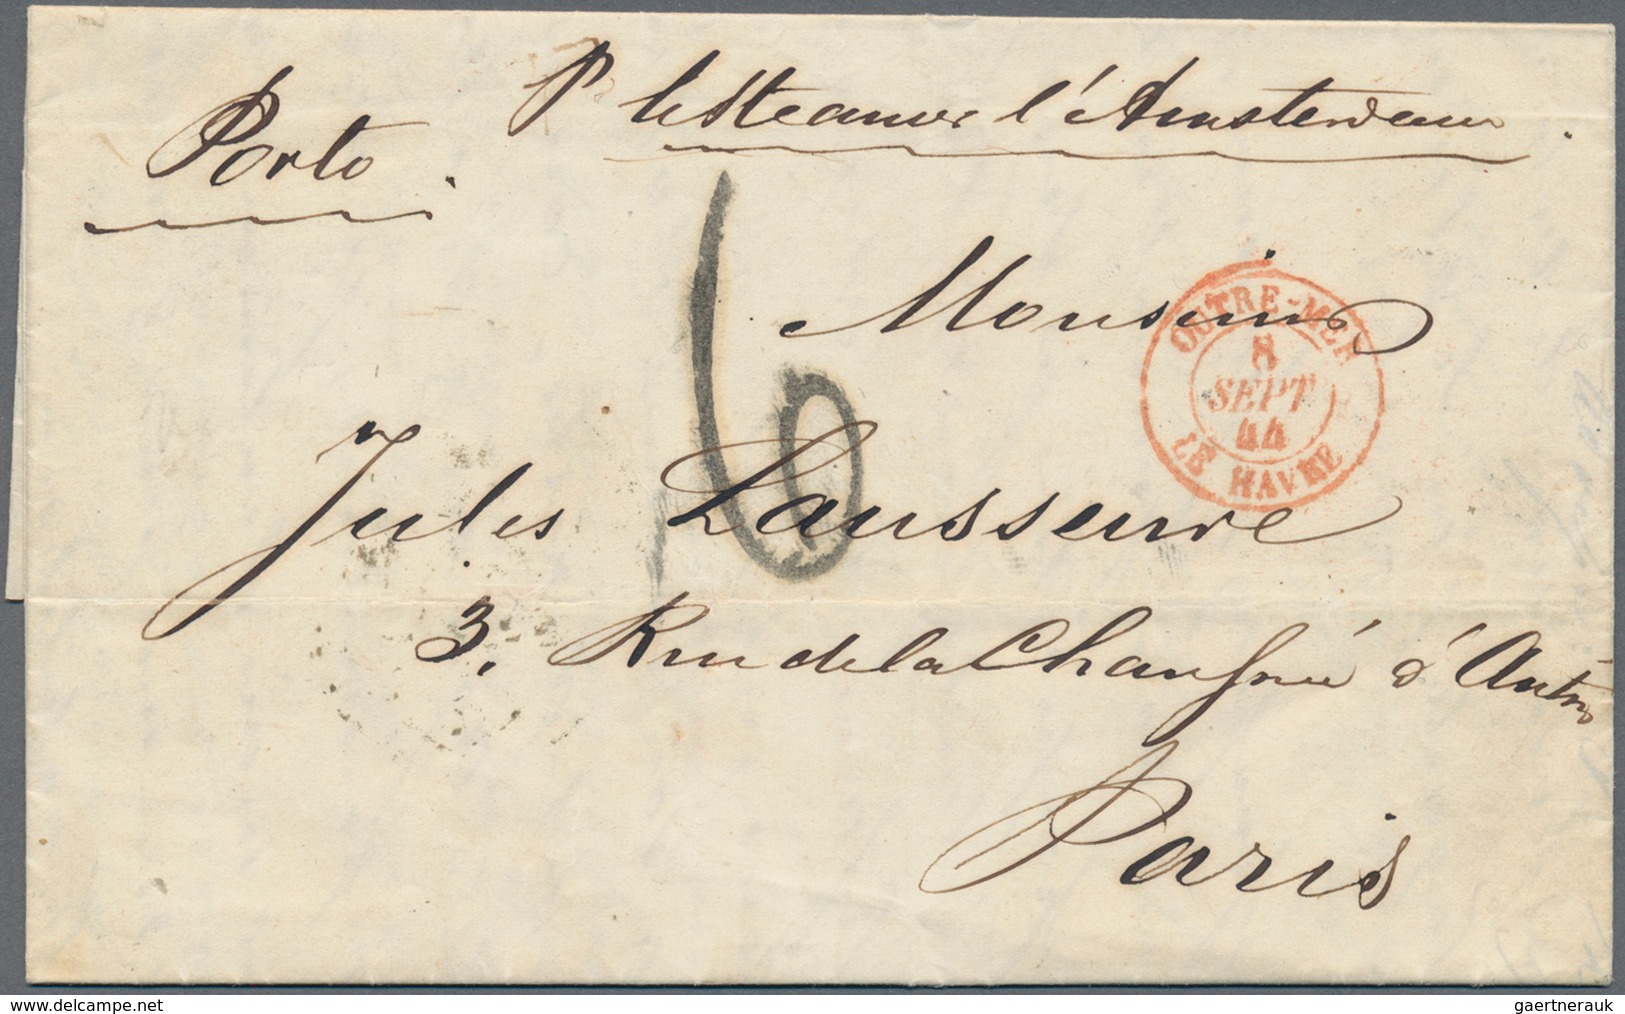 Porto.
P. le Steamer l'Amsterdam.
6
Monsieur
OUTRE-MER
8
SEPT
44
LE HAVRE
Jules Lausseure
3. Rue de la Chaussée d'Antin
Paris
www.delcampe.net
gaertnerauk